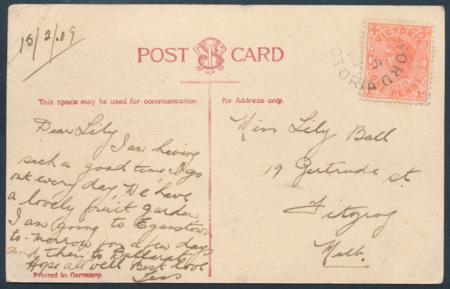 15/2/09
POST CARD
VICTORIA
PENNY
This space may be used for communication.
for Address only.
Dear Lily
I am having
such a good time I go
out every day We have
a lovely fruit garden
I am going to Eganstown
to-morrow for a few days
and then to Ballarat
Hope all well Best love
Tess
Miss Lily Ball
19 Gertrude st
Fitzroy
Melb.
Printed in Germany.